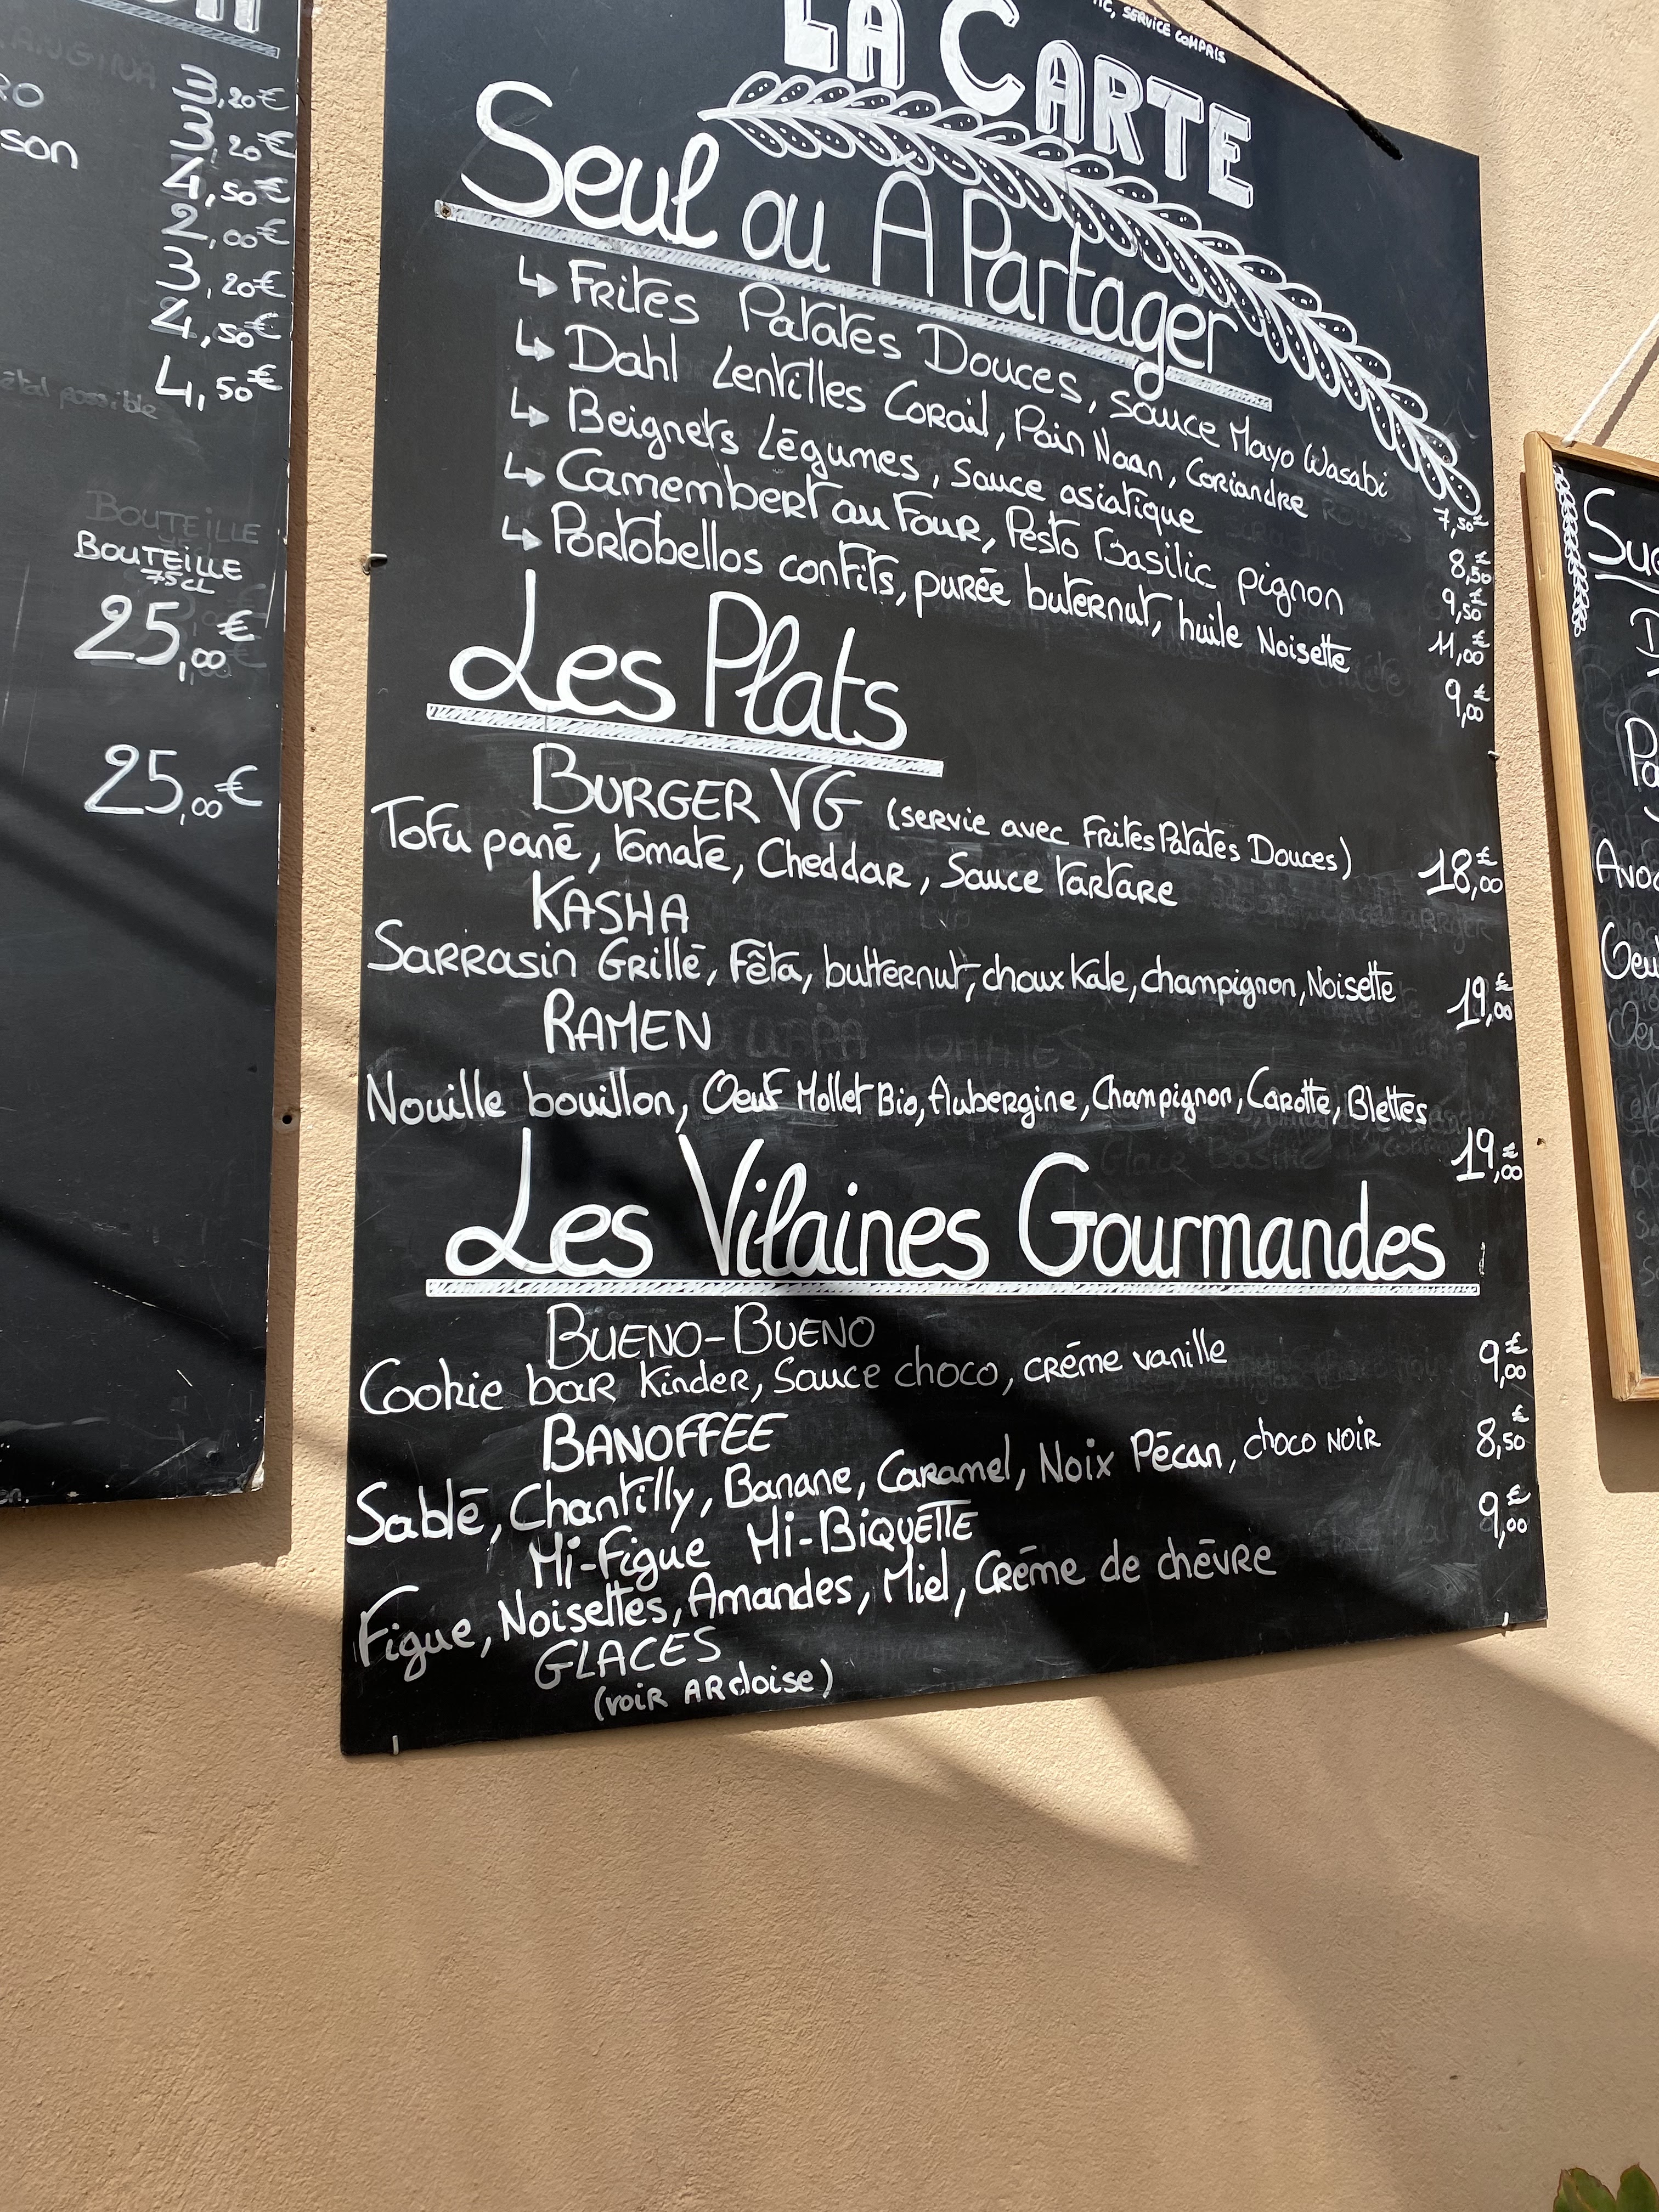 3,20€
3,20€
4,50€
2,00€
3,20€
4,50€
4,50€
BOUTEILLE
BOUTEILLE
75cl
25,00€
25,00€
SERVICE COMPRIS
LA CARTE
Seul ou A Partager
↳ Frites Patates Douces, sauce Mayo Wasabi 7,50€
↳ Dahl Lentilles Corail, Pain Naan, Coriandre 8,50€
↳ Beignets Légumes, sauce asiatique 9,50€
↳ Camembert au Four, Pesto Basilic pignon 11,00€
↳ Portobellos confits, purée buternut, huile Noisette 9,00€
Les Plats
BURGER VG (servie avec Frites Patates Douces)
Tofu pané, tomate, Cheddar, Sauce tartare 18,00€
KASHA
Sarrasin Grillé, Fêta, butternut, choux Kale, champignon, Noisette 19,00€
RAMEN
Nouille bouillon, Oeuf Mollet Bio, Aubergine, Champignon, Carotte, Blettes
19,00€
Les Vilaines Gourmandes
BUENO-BUENO
Cookie bar Kinder, Sauce choco, créme vanille 9,00€
BANOFFEE
Sablé, Chantilly, Banane, Caramel, Noix Pécan, choco noir 8,50€
Mi-Figue Mi-BiQUETTE
Figue, Noisettes, Amandes, Miel, Créme de chévre 9,00€
GLACES
(voir Ardoise)